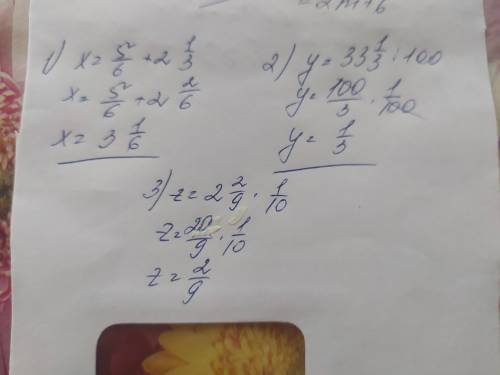 = 2m+6
1) x = 5/6 + 2 1/3
x = 5/6 + 2 2/6
x = 3 1/6
2) y = 33 1/3 : 100
y = 100/3 · 1/100
y = 1/3
3) z = 2 2/9 · 1/10
z = 20/9 · 1/10
z = 2/9